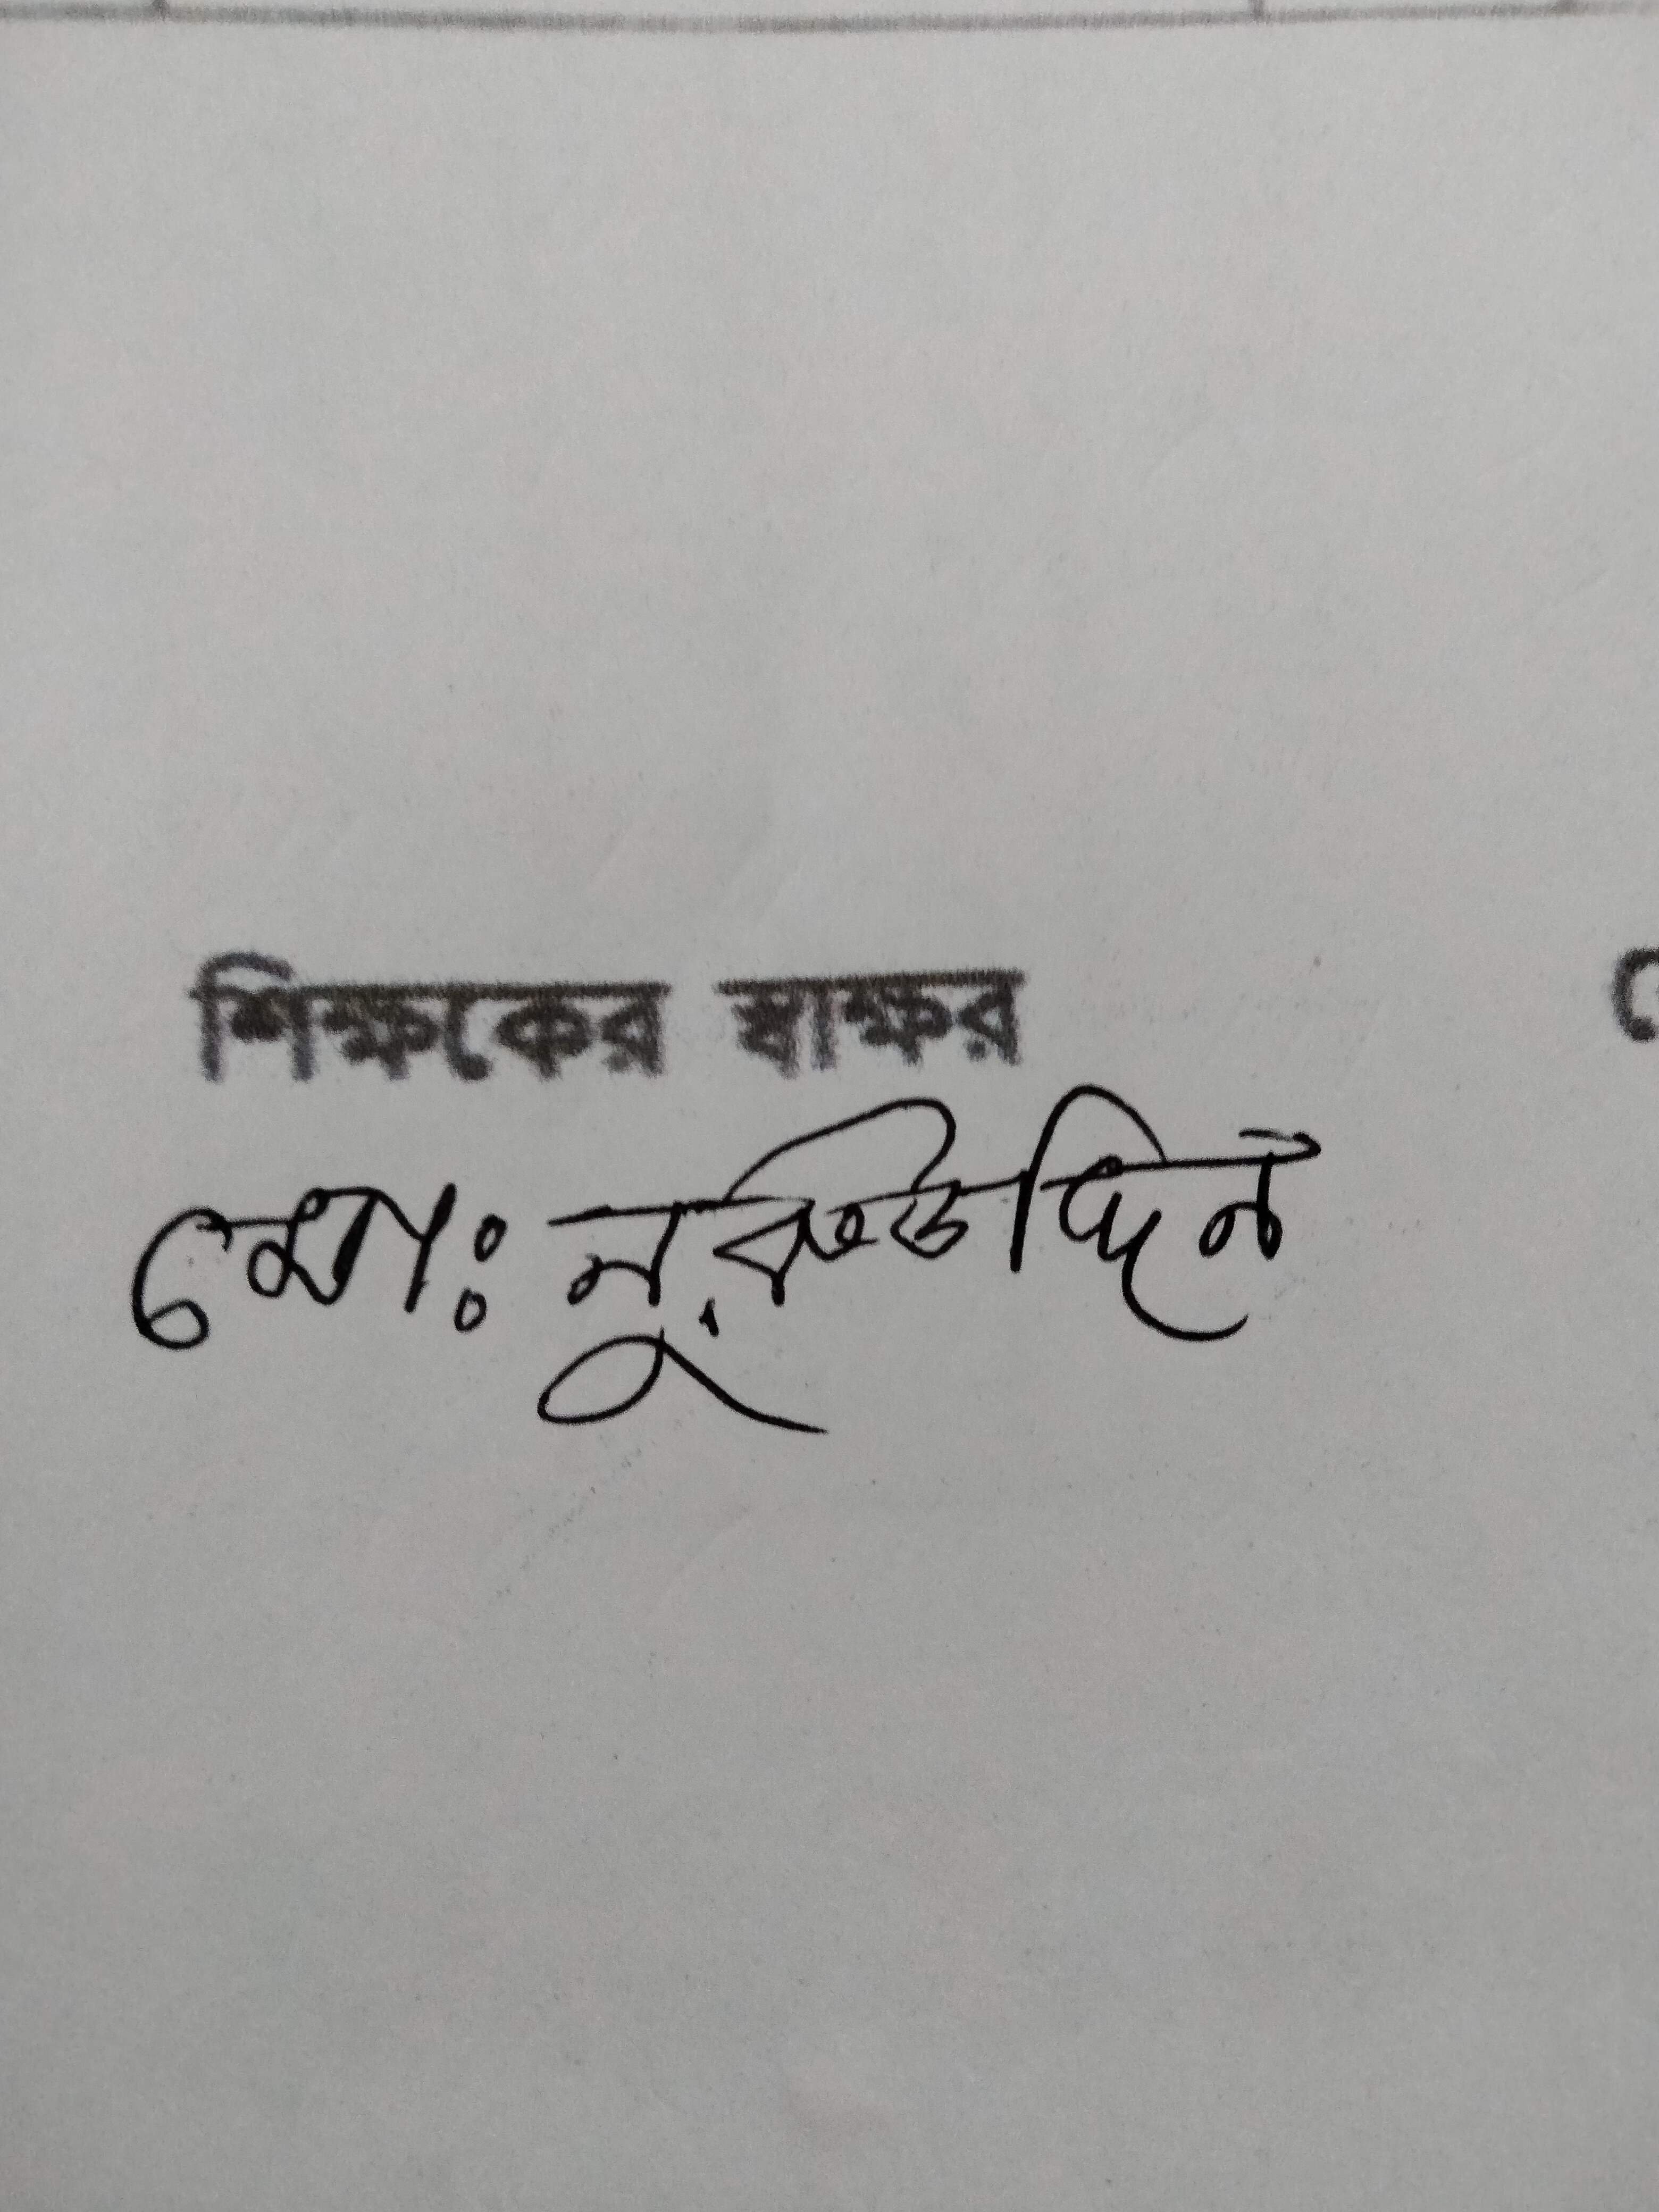 শিক্ষকের স্বাক্ষর
মোঃ নূরুউদ্দিন